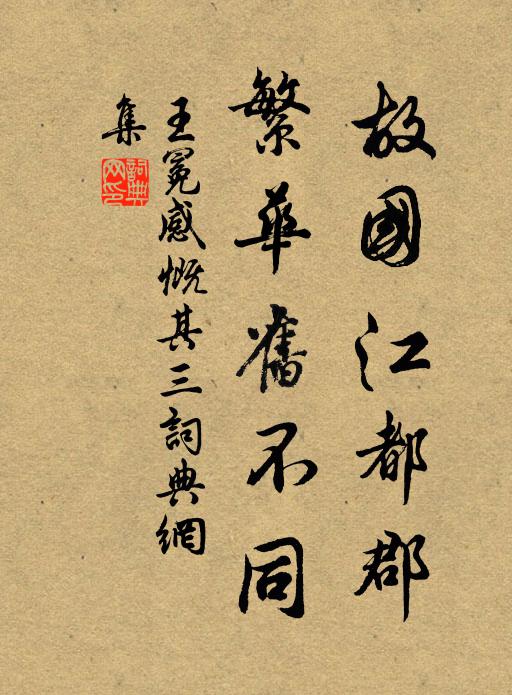 故國江都郡
繁華舊不同
王冕感慨其三詞典網
集
詞典
网印